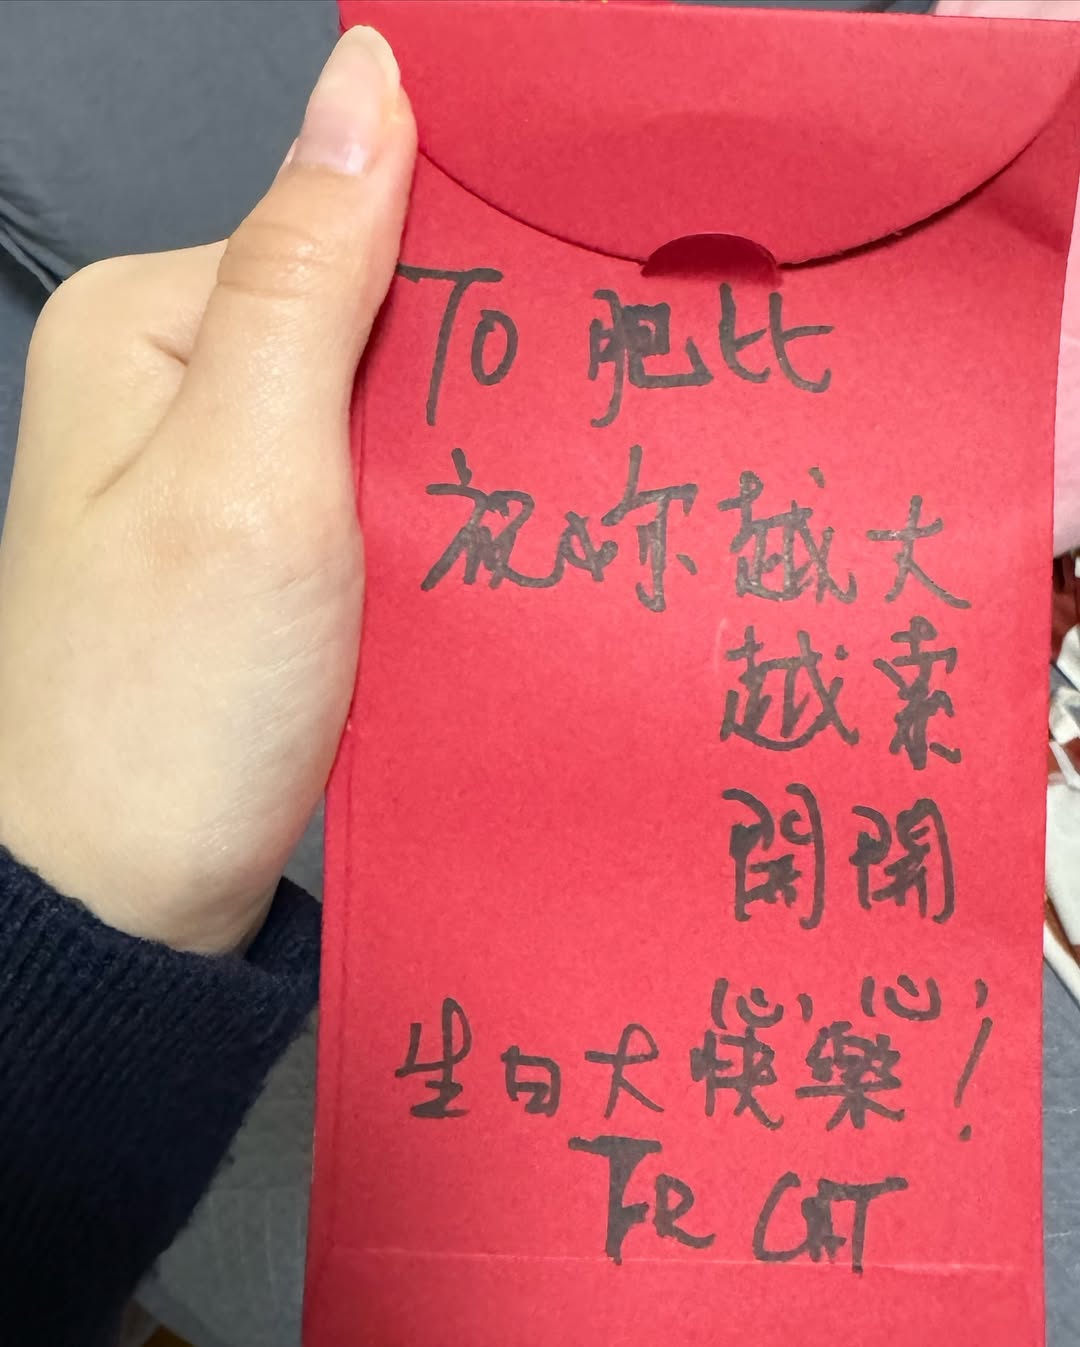 TO 肥比
祝妳越大
越索
開開
心心
生日大快樂!
FR CAT